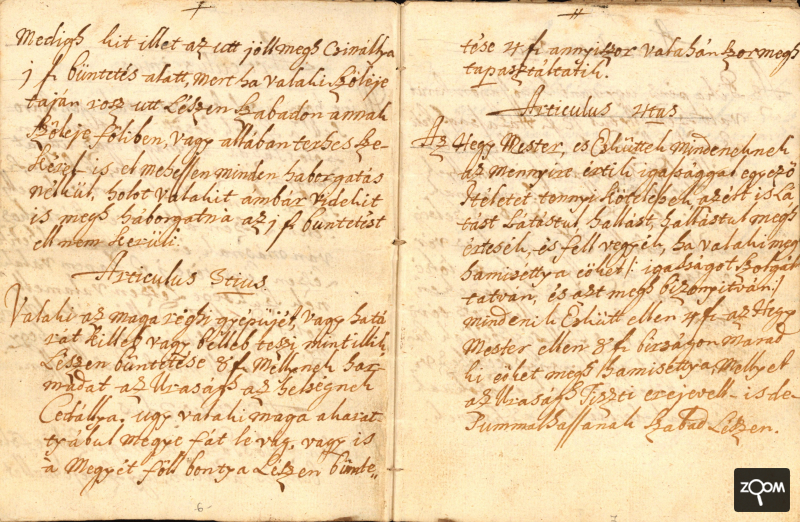 Medigh kit illet az utt jóll megh Czinállya
1 f büntetés alatt, mert ha valaki Szöleje
taján rosz utt Lészen szabadon annak
Szöleje föliben, vagy allában terhes Sze-
kérel is el mehessen minden haborgatás
nélkül, holot valakit ambár vidékit
is megh háborgatna az 1 f büntetést
ell nem kerüli.
Articulus 3tius
Valaki az maga réghi gyépüjét, vagy hatá
rát killeb vagy belleb teszi mint illik
Lészen büntetése 8 f Mellynek har-
madat az Uraságh az helségnek
Cedállya. ugy valaki maga akarat-
tyábul megyé fát le vág, vagy is
a Megyét föll bontya Lészen bünte„
6
tése 4 f annyiszor valahánszor megh
tapasztáltatik.
Articulus 4tus
Az Hegy Mester, es Esküttek mindeneknek
az mennyire értik igasággal egyező
Itéletet tenni kötelesek, azért is Lá-
tást Látástul, hallást, hallástul megh
értesék, és fell vegyék, ha valaki megh
hamisettya eőket /: igasságot Szolgál
tatván, és azt megh bizonyitván :/
mindenik Esküt ellen 4 f az Hegy
Mester ellen 8 f birságon marad
ki eőket megh hamisettya Mellyet
az Uraságh Tiszti erejevell is de-
summálhassanak szabad Lészen.
7
ZOOM